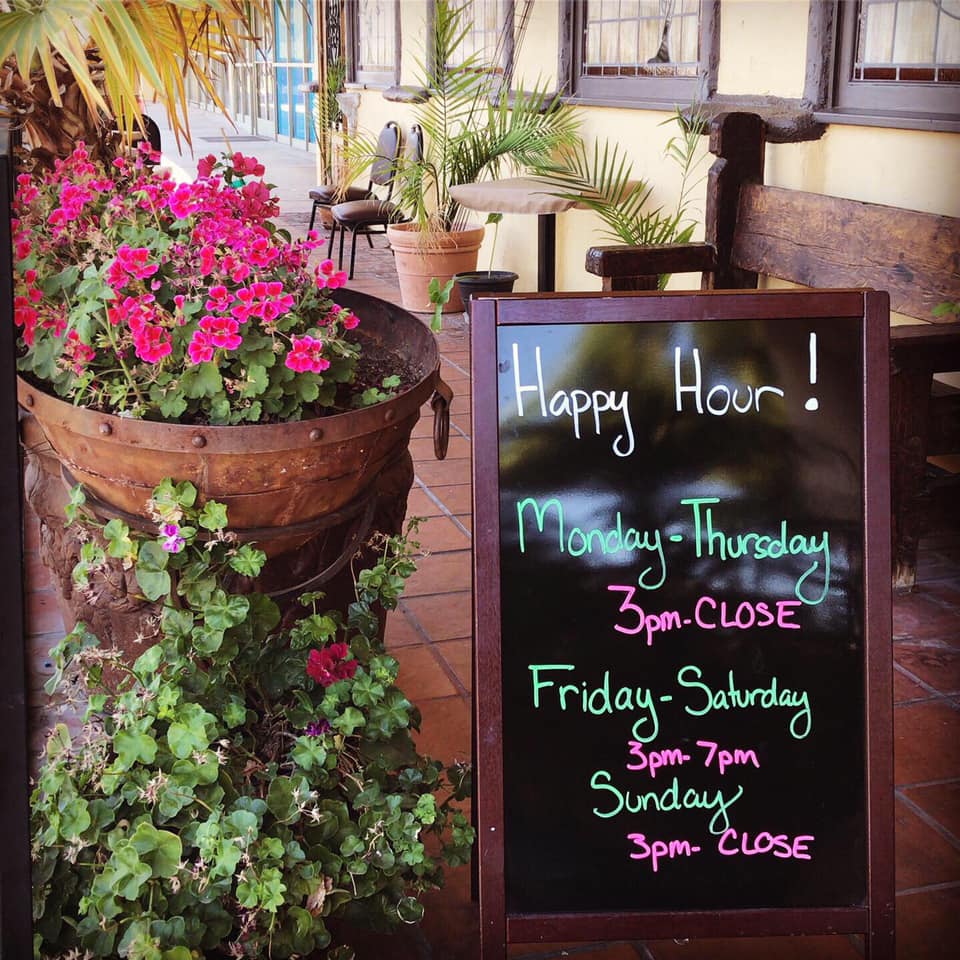 Happy Hour!
Monday-Thursday
3pm-CLOSE
Friday-Saturday
3pm-7pm
Sunday
3pm-CLOSE